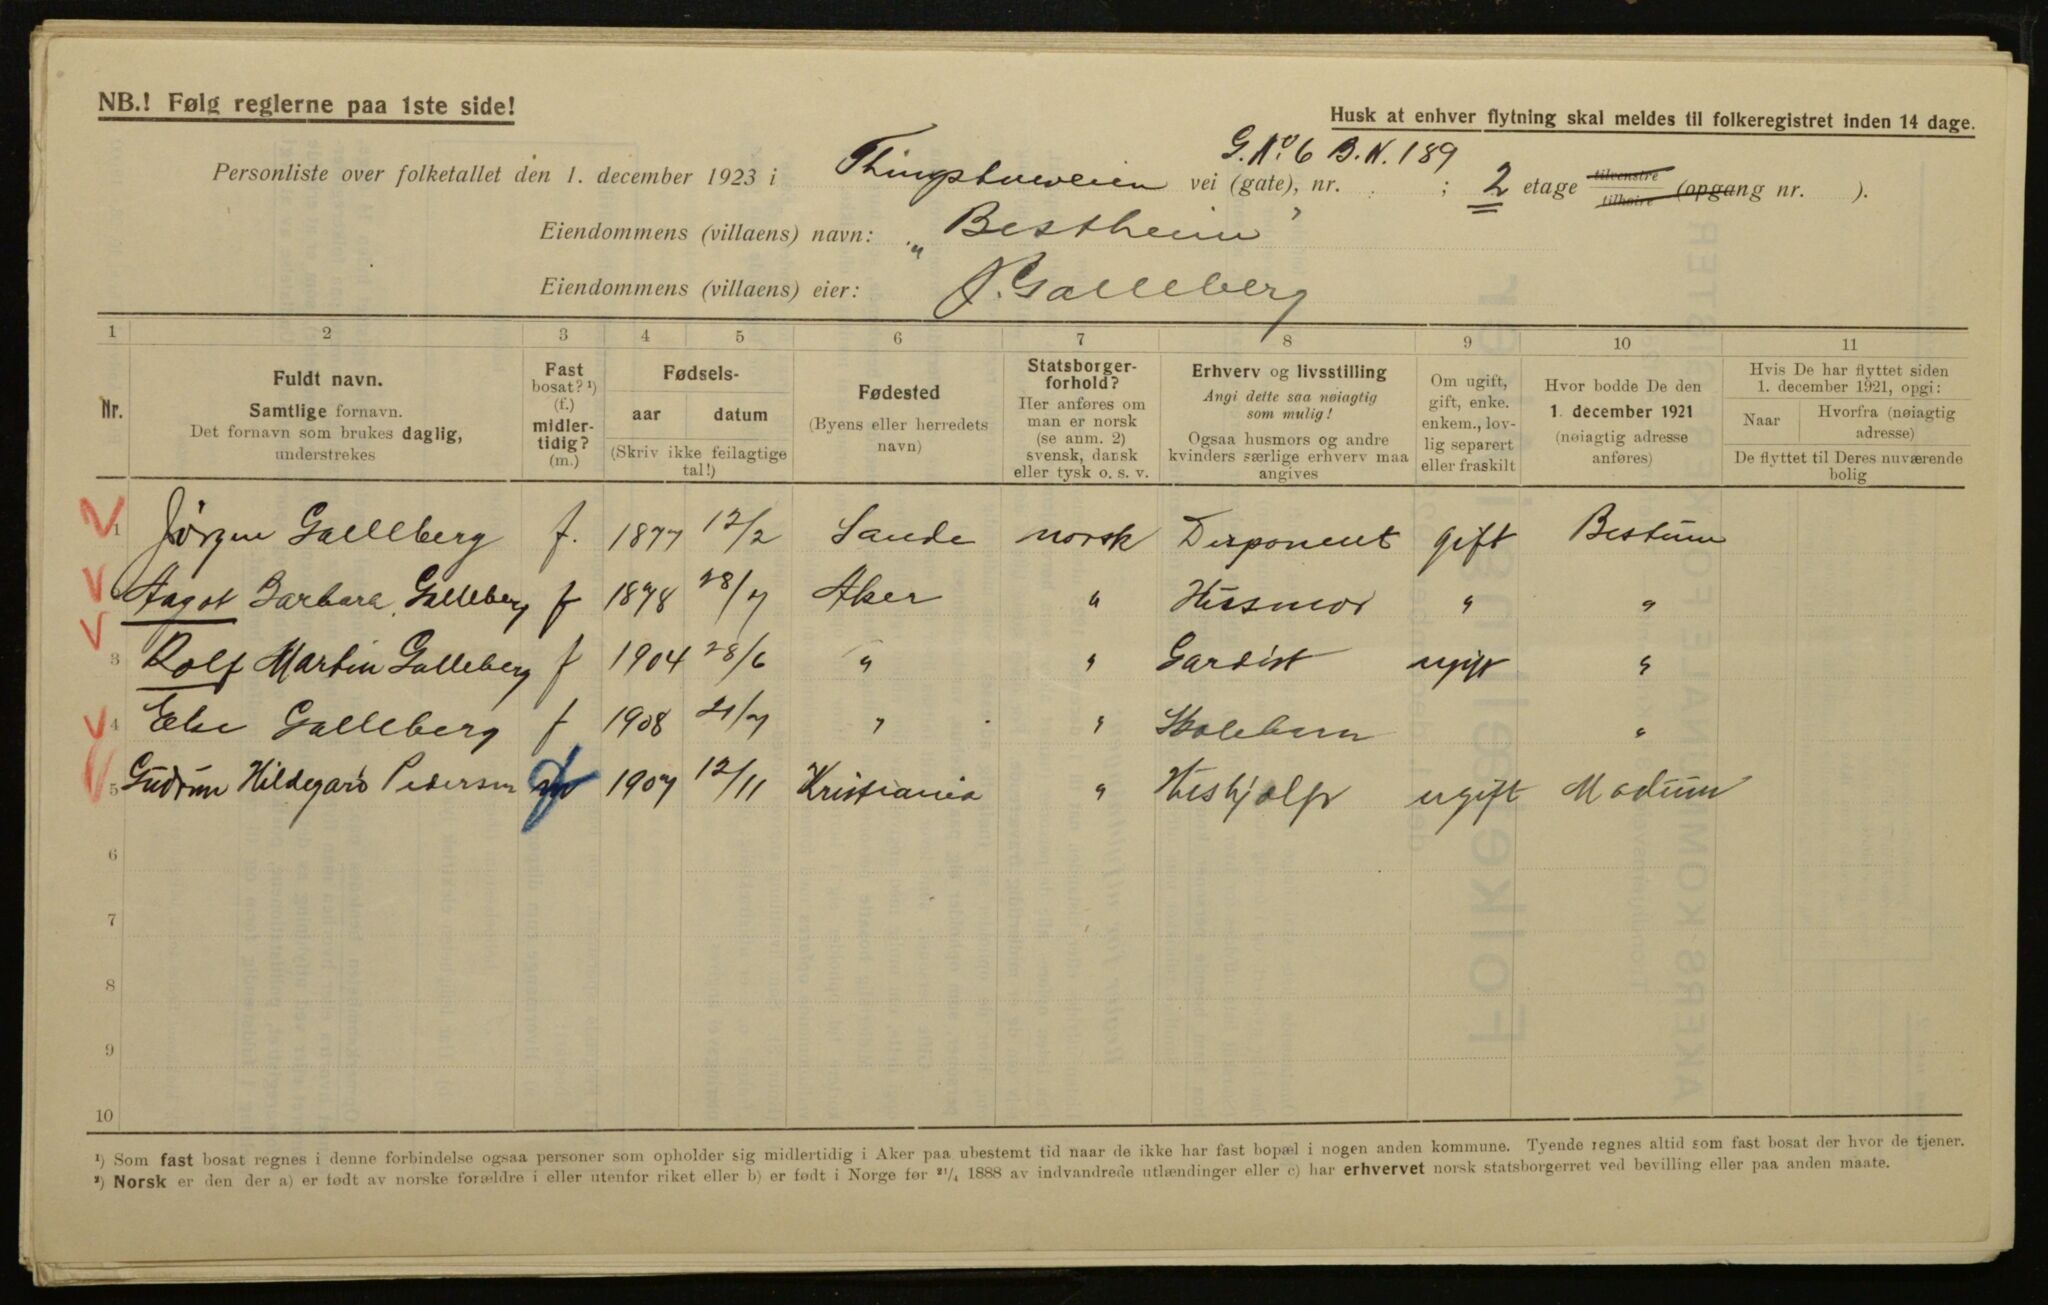 NB.! Følg reglerne paa 1ste side!
Husk at enhver flytning skal meldes til folkeregistret inden 14 dage.
G. No. 6 B. N. 189
Personliste over folketallet den 1. december 1923 i Thingstueveien vei (gate), nr. ; 2 etage tilvenstre tilhøire (opgang nr. ).
Eiendommens (villaens) navn: „Bestheim"
Eiendommens (villaens) eier: J. Galleberg
1 2 3 4 5 6 7 8 9 10 11
Nr.
Fuldt navn.
Samtlige fornavn.
Det fornavn som brukes daglig,
understrekes
Fast
bosat? ¹)
(f.)
midler-
tidig?
(m.)
Fødsels-
aar datum
(Skriv ikke feilagtige
tal!)
Fødested
(Byens eller herredets
navn)
Statsborger-
forhold?
Her anføres om
man er norsk
(se anm. 2)
svensk, dansk
eller tysk o. s. v.
Erhverv og livsstilling
Angi dette saa nøiagtig
som mulig!
Ogsaa husmors og andre
kvinders særlige erhverv maa
angives
Om ugift,
gift, enke.
enkem., lov-
lig separert
eller fraskilt
Hvor bodde De den
1. december 1921
(nøiagtig adresse
anføres)
Hvis De har flyttet siden
1. december 1921, opgi:
Naar Hvorfra (nøiagtig
adresse)
De flyttet til Deres nuværende
bolig
1 Jörgen Galleberg f. 1877 12/2 Sande norsk Disponent gift Bestum
Aagot Barbara Galleberg f 1878 28/7 Aker " Husmor " "
3 Rolf Martin Galleberg f 1904 28/6 " " Gardist ugift "
4 Else Galleberg f 1908 21/7 " " Skolebarn "
5 Gudrun Hildegard Pedersen f 1907 12/11 Kristiania " Hushjælp ugift Modum
6
7
8
9
10
¹) Som fast bosat regnes i denne forbindelse ogsaa personer som opholder sig midlertidig i Aker paa ubestemt tid naar de ikke har fast bopæl i nogen anden kommune. Tyende regnes altid som fast bosat der hvor de tjener.
²) Norsk er den der a) er født av norske forældre i eller utenfor riket eller b) er født i Norge før ²¹/₄ 1888 av indvandrede utlændinger eller c) har erhvervet norsk statsborgerret ved bevilling eller paa anden maate.